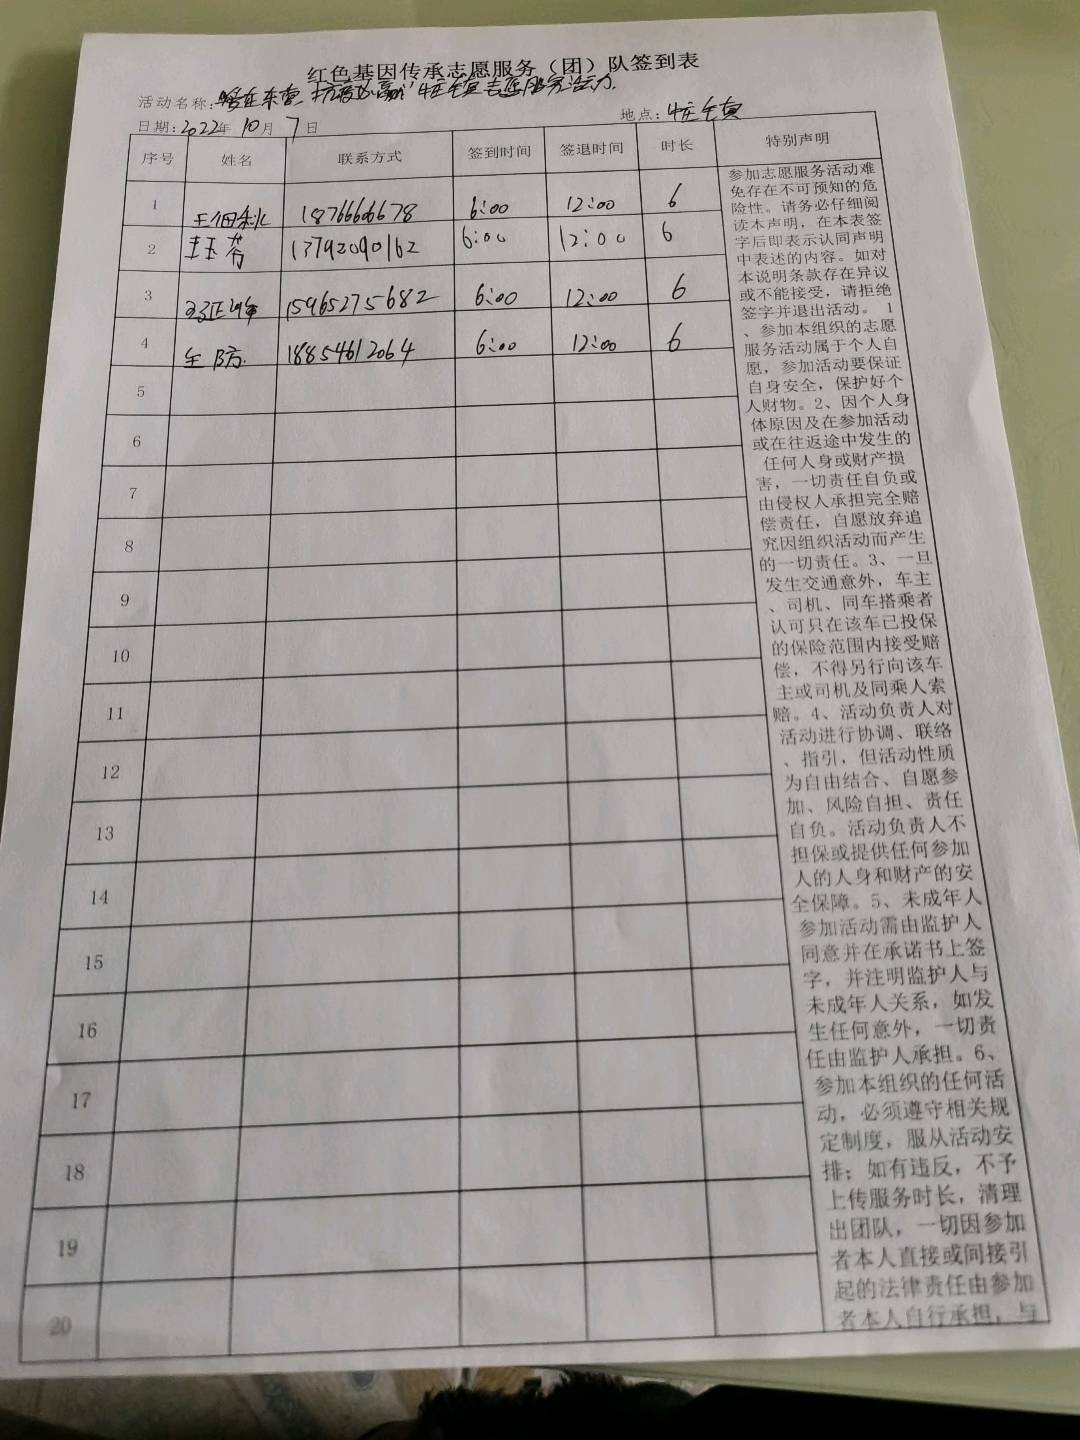 红色基因传承志愿服务（团）队签到表
活动名称：
日期：2022年 10月 7日
地点：
序号 姓名 联系方式 签到时间 签退时间 时长 特别声明
1 18766606678 6:00 12:00 6
2 13792090162 6:00 12:00 6
3 15965275682 6:00 12:00 6
4 18854612064 6:00 12:00 6
5
6
7
8
9
10
11
12
13
14
15
16
17
18
19
20
参加志愿服务活动难
免存在不可预知的危
险性。请务必仔细阅
读本声明，在本表签
字后即表示认同声明
中表述的内容。如对
本说明条款存在异议
或不能接受，请拒绝
签字并退出活动。 1
、参加本组织的志愿
服务活动属于个人自
愿，参加活动要保证
自身安全，保护好个
人财物。2、因个人身
体原因及在参加活动
或在往返途中发生的
任何人身或财产损
害，一切责任自负或
由侵权人承担完全赔
偿责任，自愿放弃追
究因组织活动而产生
的一切责任。3、一旦
发生交通意外，车主
、司机、同车搭乘者
认可只在该车已投保
的保险范围内接受赔
偿，不得另行向该车
主或司机及同乘人索
赔。4、活动负责人对
活动进行协调、联络
、指引，但活动性质
为自由结合、自愿参
加、风险自担、责任
自负。活动负责人不
担保或提供任何参加
人的人身和财产的安
全保障。5、未成年人
参加活动需由监护人
同意并在承诺书上签
字，并注明监护人与
未成年人关系，如发
生任何意外，一切责
任由监护人承担。6、
参加本组织的任何活
动，必须遵守相关规
定制度，服从活动安
排；如有违反，不予
上传服务时长，清理
出团队，一切因参加
者本人直接或间接引
起的法律责任由参加
者本人自行承担，与